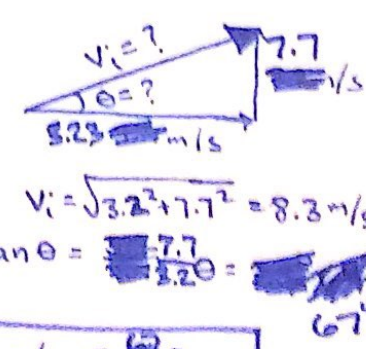 Vi = ?
7.7
θ = ?
m/s
Vi = √3.2²+7.7² = 8.3 m/s
an θ = 7.7/3.2 θ =
67°